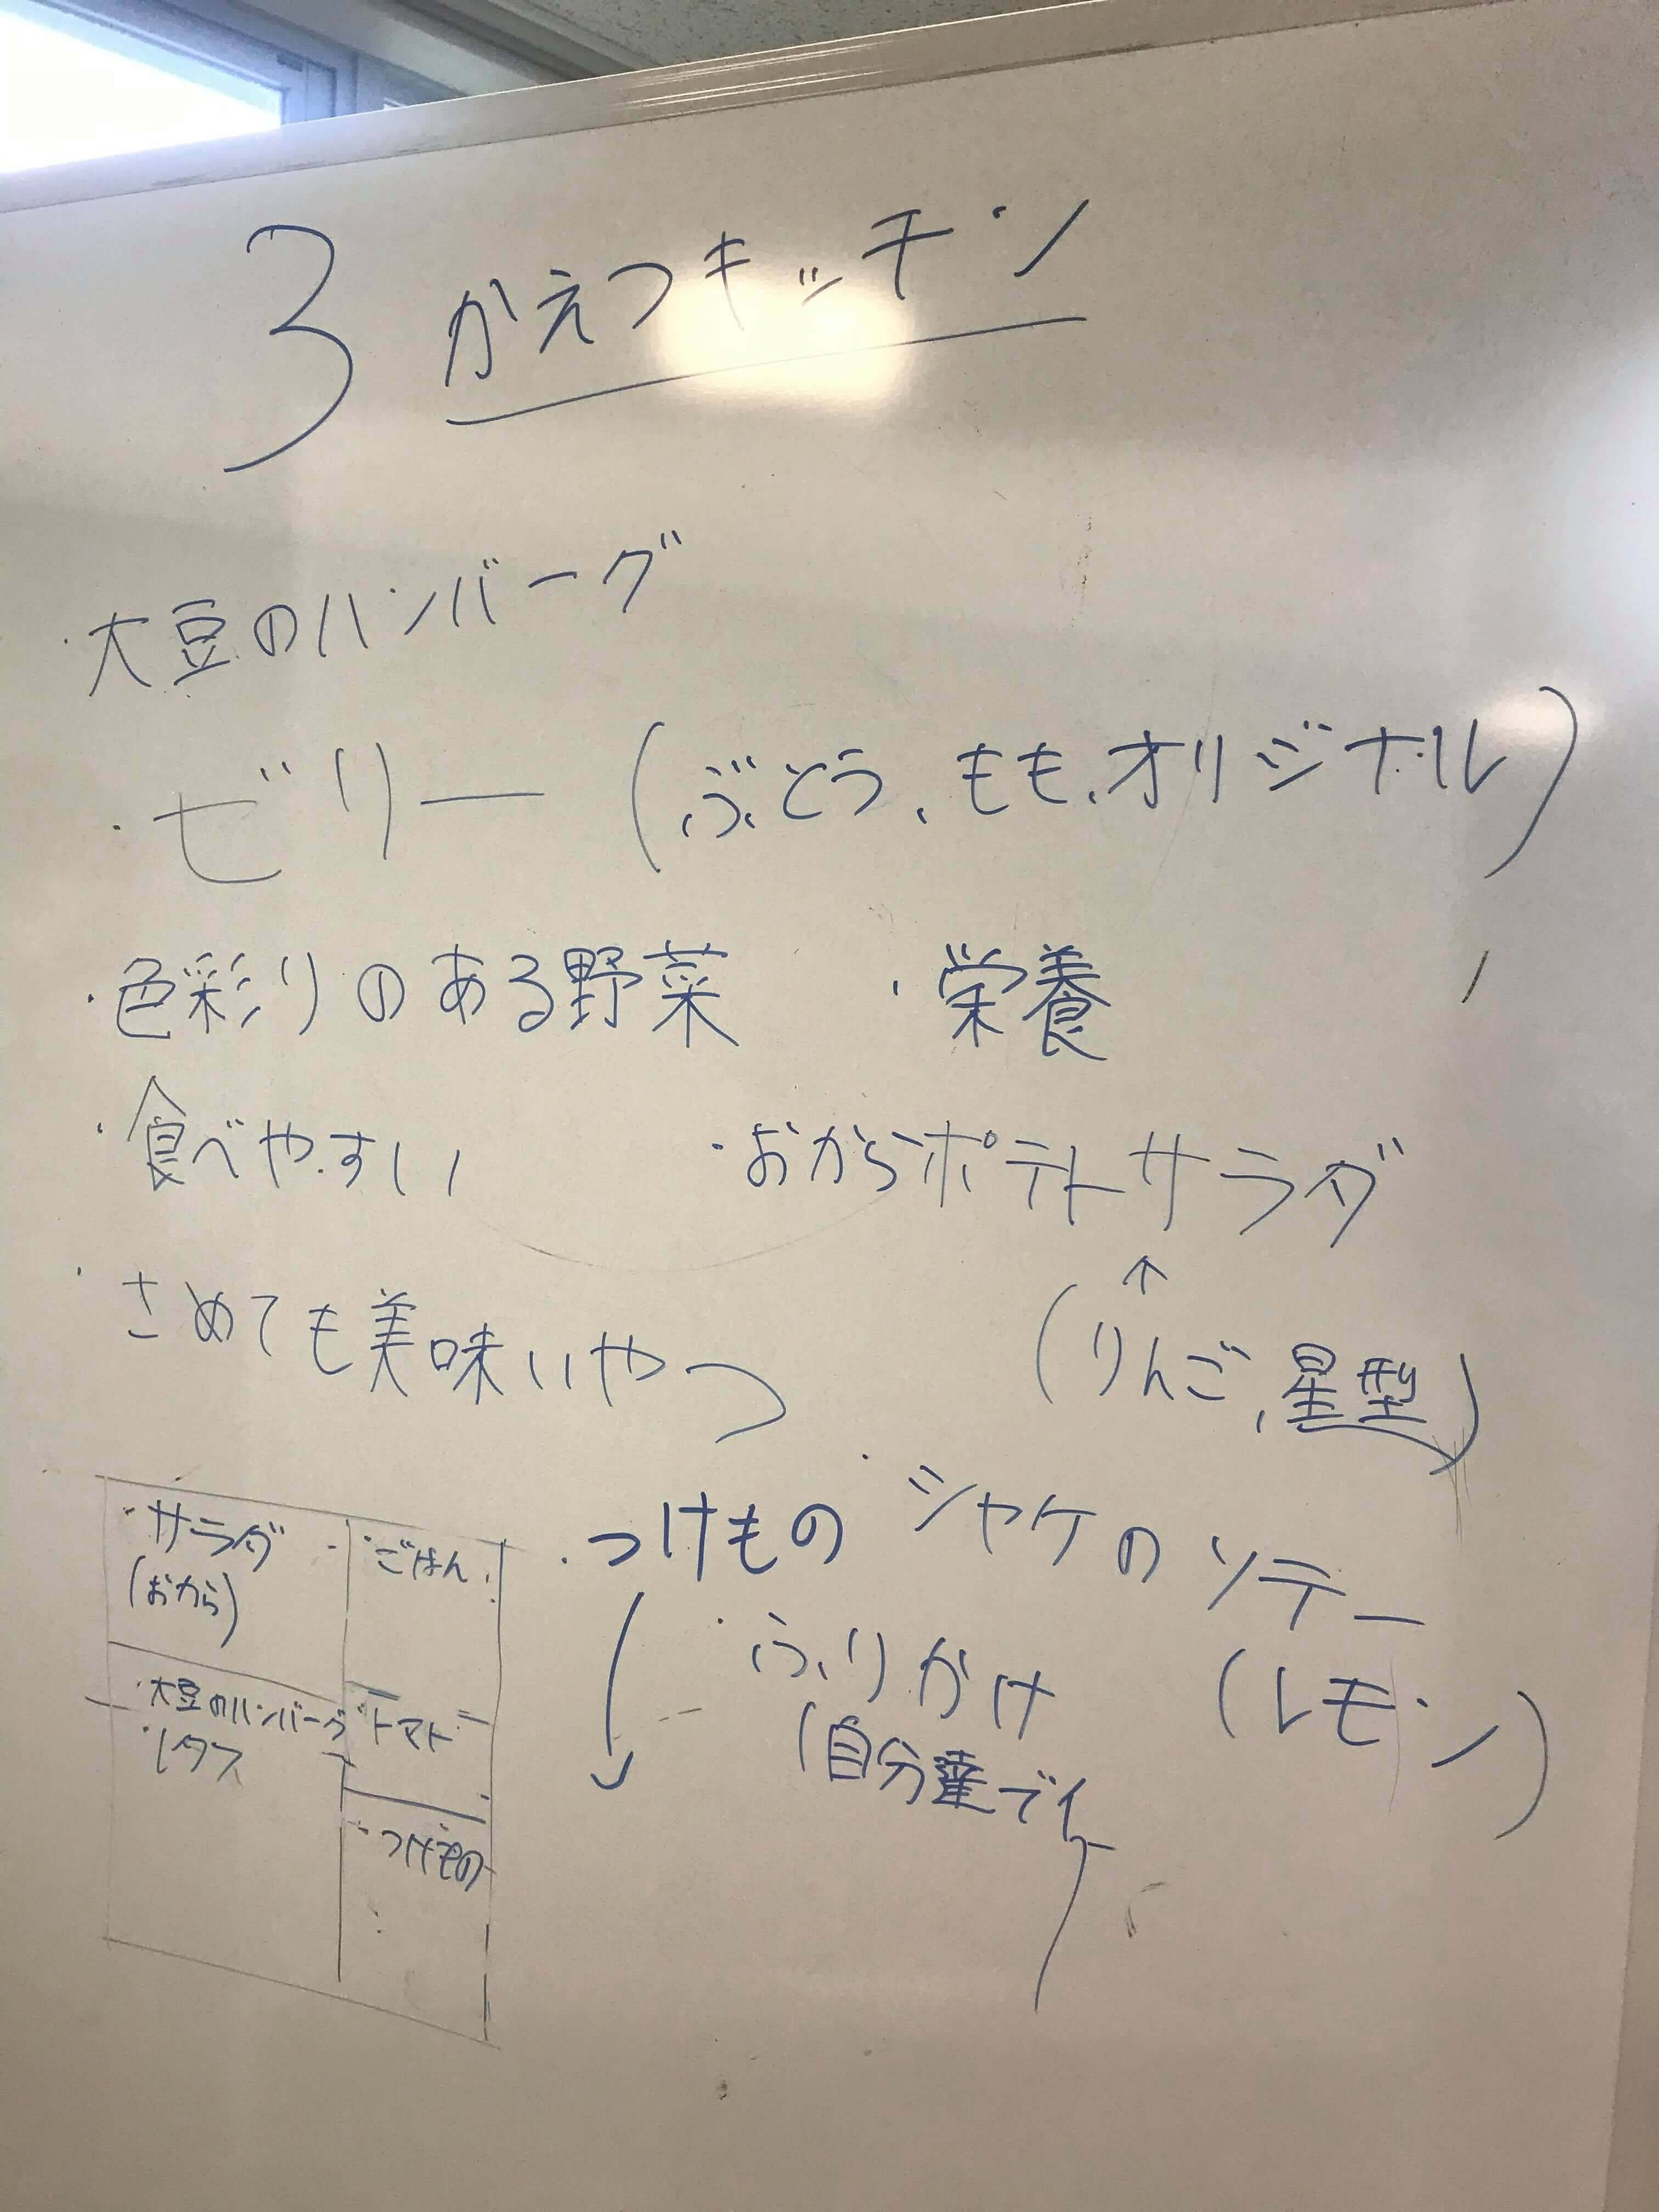 3 かえつキッチン
・大豆のハンバーグ
・ゼリー（ぶどう、もも、オリジナル）
・色彩りのある野菜
・栄養
・食べやすい
・おからポテトサラダ
↑
（りんご、星型）
・さめても美味いやつ
・つけもの
・シャケのソテー
（レモン）
・ふりかけ
（自分達で
・サラダ
（おから）
・ごはん
・大豆のハンバーグ
・レタス
・トマト
・つけもの